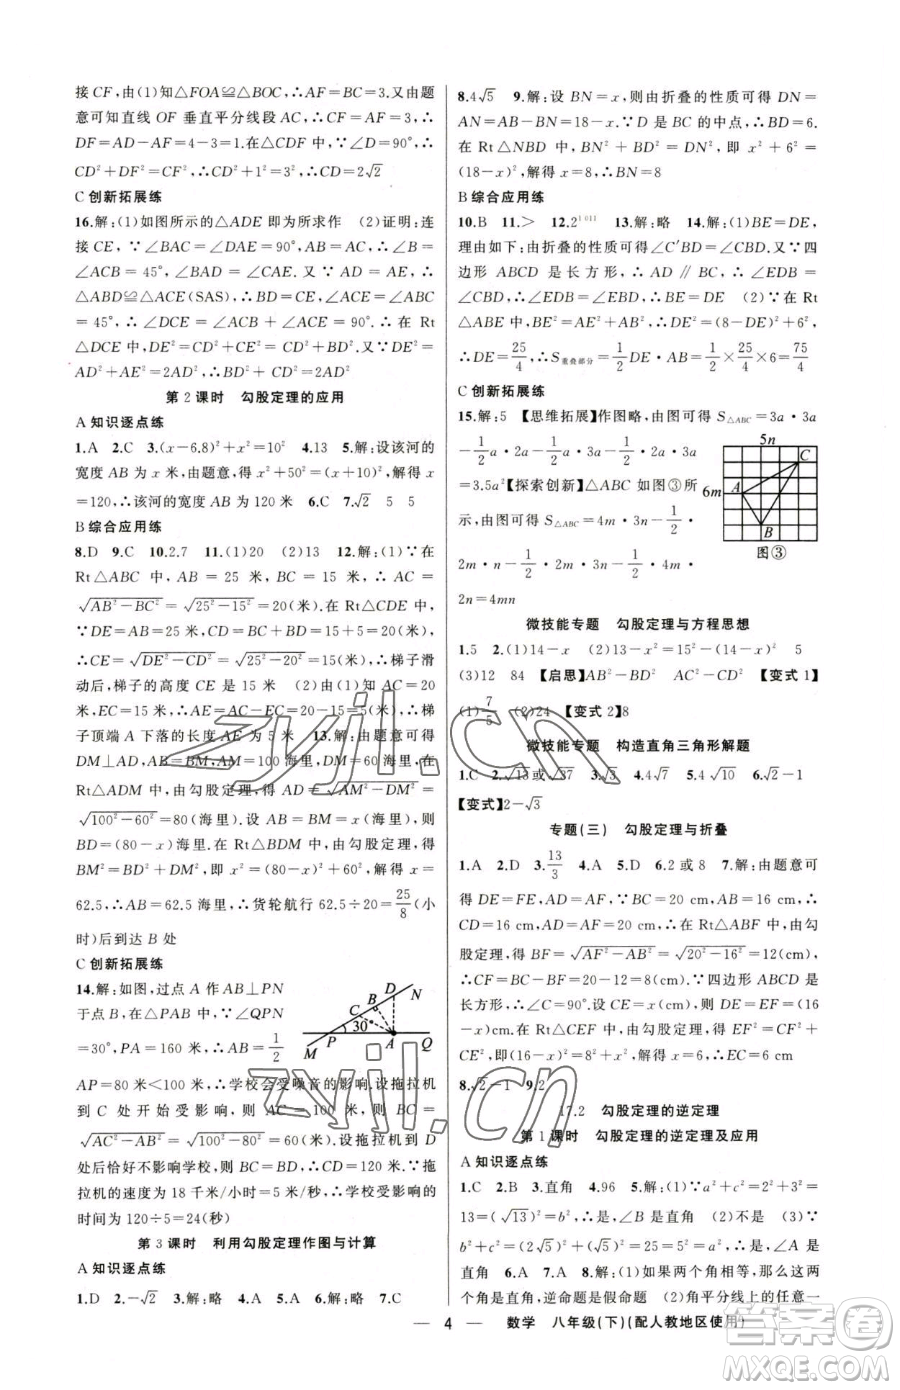 接 CF,由(1)知△FOA≌△BOC,∴AF=BC=3.又由题
意可知直线 OF 垂直平分线段 AC,∴CF=AF=3,∴
DF=AD-AF=4-3=1. ∵∠D=90°,∴CD²+
DF²=CF²,∴CD²+1²=3²,∴CD=2√2
C 创新拓展练
16.解:(1)如图所示的△ADE 即为所求作 (2)证明:连
接 CE,∵∠BAC=∠DAE=90°,∴∠BAC-
∠DAC=∠DAE-∠DAC,即∠BAD=∠CAE.
又∵AB=AC,AD=AE,∴
△ABD≌△ACE(SAS),∴BD=CE,∠B=∠ACE
=45°,∴∠DCE=∠ACB+∠ACE=90°.∴在 Rt
△DCE中,CD²+CE²=DE²,∴CD²+BD²=DE²=
AD²+AE²=AD²+AD²=2AD²
第 2 课时 勾股定理的应用
A 知识逐点练
1.A 2.C 3.(x-6.8)²+x²=10² 4.13 5.解:设该河的
宽度 AB 为 x 米,由题意,得 x²+50²=(x+10)²,解得 x=
120,∴该河的宽度 AB 为 120 米 6.C 7.√2 5 5
B 综合应用练
8.D 9.C 10.2.7 11.(1)20 (2)13 12.解:(1)∵在
Rt△ABC 中,AB=25 米,BC=15 米,∴AC=
√(AB²-BC²)=√(25²-15²)=20(米).在 Rt△CDE 中,∵
DE=AB=25米,CD=BC+BD=15+5=20(米),∴
CE=√(DE²-CD²)=√(25²-20²)=15(米),∴梯子滑
动后,梯子的高度 CE 是 15 米 (2)由(1)可知 AC=20
米,EC=15米,∴AE=AC-EC=20-15=5(米),∴梯
子顶端 A 下落的长度是 5 米 13.解:由题意可得
DM⊥AD,AB=BM,AM=100海里,DM=60海里,在
Rt△ADM 中,由勾股定理,得 AD=√(AM²-DM²)=
√(100²-60²)=80(海里).设 AB=BM=x 海里,则 BD
=(80-x)海里,在 Rt△BDM 中,由勾股定理,得
BM²=BD²+DM²,即 x²=(80-x)²+60²,解得 x=
62.5,∴AB=62.5 海里,∴货轮航行 62.5÷20=25/8(小
时)后到达 B 处
C 创新拓展练
14.解:如图,过点 A 作AB⊥PN
于点 B,在△PAB 中,∵∠QPN
=30°,PA=160 米,∴AB=1/2
AP=80 米<100 米,∴学校会受噪音的影响,设拖拉机
到 C 处开始受到影响,则 AC=100 米,∴BC=
√(AC²-AB²)=√(100²-80²)=60(米),设拖拉机到 D
处恰好不影响学校,∴BC=BD,∴CD=120 米.∵拖
拉机的速度为 18 千米/小时=5 米/秒,∴受影响的
时间为 120÷5=24(秒)
B D N
C
30°
M P A Q
第 3 课时 利用勾股定理作图与计算
A 知识逐点练
1.D 2.-√2 3.略 4.A 5.略 6.A 7.C
8.4√5 9.解:设 BN=x,则由折叠的性质可得 DN=
AN=AB-BN=18-x.∵D 是 BC 的中点,∴BD=6.
在 Rt△NBD 中,BD²+BN²=DN²,即 x²+6²=
(18-x)²,解得 x=8,∴BN=8
B 综合应用练
10.B 11.> 12.2¹⁰¹¹ 13.解:略 14.解:(1)BE=DE,
理由如下:由折叠的性质可得∠C′BD=∠CBD.又∵四
边形 ABCD 是长方形,∴AD∥BC,∴∠EDB=
∠CBD,∴∠EDB=∠EBD,∴BE=DE (2)∵在 Rt
△ABE 中,BE²=AE²+AB²,∴DE²=(8-DE)²+6²,
∴DE=25/4,∴S重叠部分=1/2DE·AB=1/2×25/4×6=75/4
C 创新拓展练
15.解:5 【思维拓展】作图略,由图可得 S△ABC=3a·3a
-1/2a·2a-1/2·2a·3a-1/2a·3a
=3.5a²【探索创新】△ABC 如图③所
示,由图可得 S△ABC=4m·3n-1/2·
2m·n-1/2·2m·3n-1/2·4m·
2n=4mn
5n
6m
A
B
C
图③
微技能专题 勾股定理与方程思想
1.5 2.(1)14-x (2)13²-x²=15²-(14-x)² 5
(3)12 84 【启思】AB²-BD² AC²-CD² 【变式 1】
(1)7/5 (2)24 【变式 2】8
微技能专题 构造直角三角形解题
1.C 2.√13或√37 3.√3 4.4√7 5.4√10 6.√2-1
【变式】2-√3
专题(三) 勾股定理与折叠
1.A 2.D 3.13/3 4.D 5.A 6.2 或 8 7.解:由题意可
得 DE=EF,AD=AF.∵BC=20 cm,AB=16 cm,∴
CD=16 cm,AD=AF=20 cm,∴在 Rt△ABF 中,由勾
股定理,得 BF=√(AF²-AB²)=√(20²-16²)=12(cm),
∴CF=BC-BF=20-12=8(cm).∵四边形 ABCD 是
长方形,∴∠C=90°.设 CE=x(cm),则 DE=EF=(16
-x)cm,在Rt△CEF 中,由勾股定理,得 EF²=CF²+
CE²,∴(16-x)²=8²+x²,解得 x=6,∴EC=6 cm
8.√2-1 9.2
17.2 勾股定理的逆定理
第 1 课时 勾股定理的逆定理及应用
A 知识逐点练
1.C 2.B 3.直角 4.96 5.解:(1)∵a²+c²=2²+3²=
13=(√13)²=b²,∴是直角三角形,∠B是直角 (2)不是 (3)∵
b²+c²=(2√5)²+(√5)²=25=5²=a²,∴是,∠A 是
直角 6.A 7.A 8.解:(1)如果两个角相等,那么这两
个角是直角,逆命题是假命题 (2)角平分线上的任意一
4 数学 八年级(下)(配人教地区使用)
zyjl.cn
zyjl.cn
答案圈
MXQE.COM